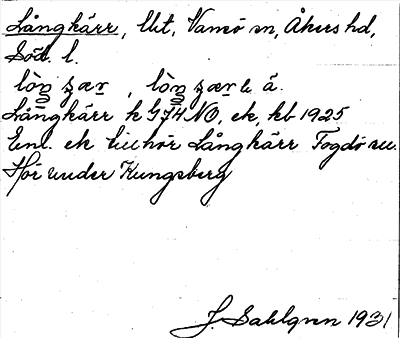 Långkärr, lht, Vansö sn, Åkers hd,
Söd. l.
lòŋ ɕær , lòŋ ɕærL å.
Långkärr k G74NO, ek, kb 1925
Enl. ek tillhör Långkärr Fogdö sn.
Hör under Kungsberg
J. Sahlgren 1931